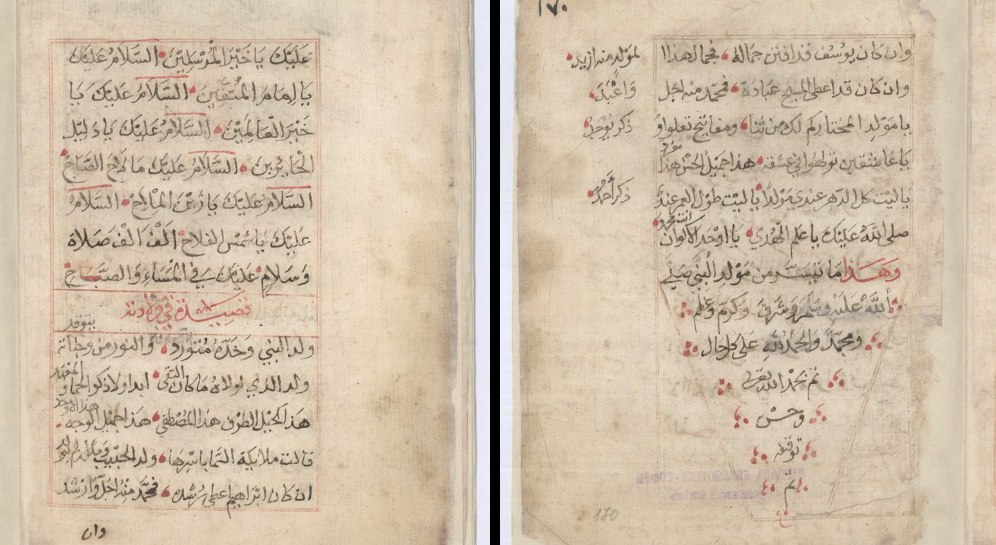 عليك يا خير المرسلين السلام عليك
يا امام المتقين السلام عليك يا
خير العالمين السلام عليك يا دليل
الحائرين السلام عليك ما لاح الصباح
السلام عليك يا زين الملاح السلام
عليك يا شمس الفلاح الف الف صلاة
وسلام عليك في المساء والصباح
قصيدة في ولادته
ولد النبي وخده متورد والنور من وجناته يتوقد
ولد الذي لولاه ما كان التقى ابدا ولا ذكر الحما والمعهد
هذا الجميل الطرف هذا المصطفى هذا جميل الوجه هذا الاوحد
قالت ملائكة السما باسرها ولد الحبيب
ان كان ابراهيم اعطي رشده فمحمد منه اجل وارشد
وان
١٧٠
وان كان يوسف قد افتن جماله فجمال هذا لمولد منه ازيد
وان كان قد اعطي المسيح عبادة فمحمد منه اجل واعبد
يا مولد المختار كم لك من ثنا ذكر يوجد
يا عاشقين تولهوا في عشقه هذا جميل الحسن هذا مفرد
يا ليت كل الدهر عندي مولدا يا ليت طول العمر عندي ذكر احمد
صلى الله عليك يا علم الهدى يا اوحد الاكوان انت محمد
وهذا ما تيسر من مولد النبي صلى
الله عليه وسلم وشرف وكرم وعظم
ومجد والحمد لله على كل حال
تم بحمد الله تعالى
وحسن
توفيقه
تم
170